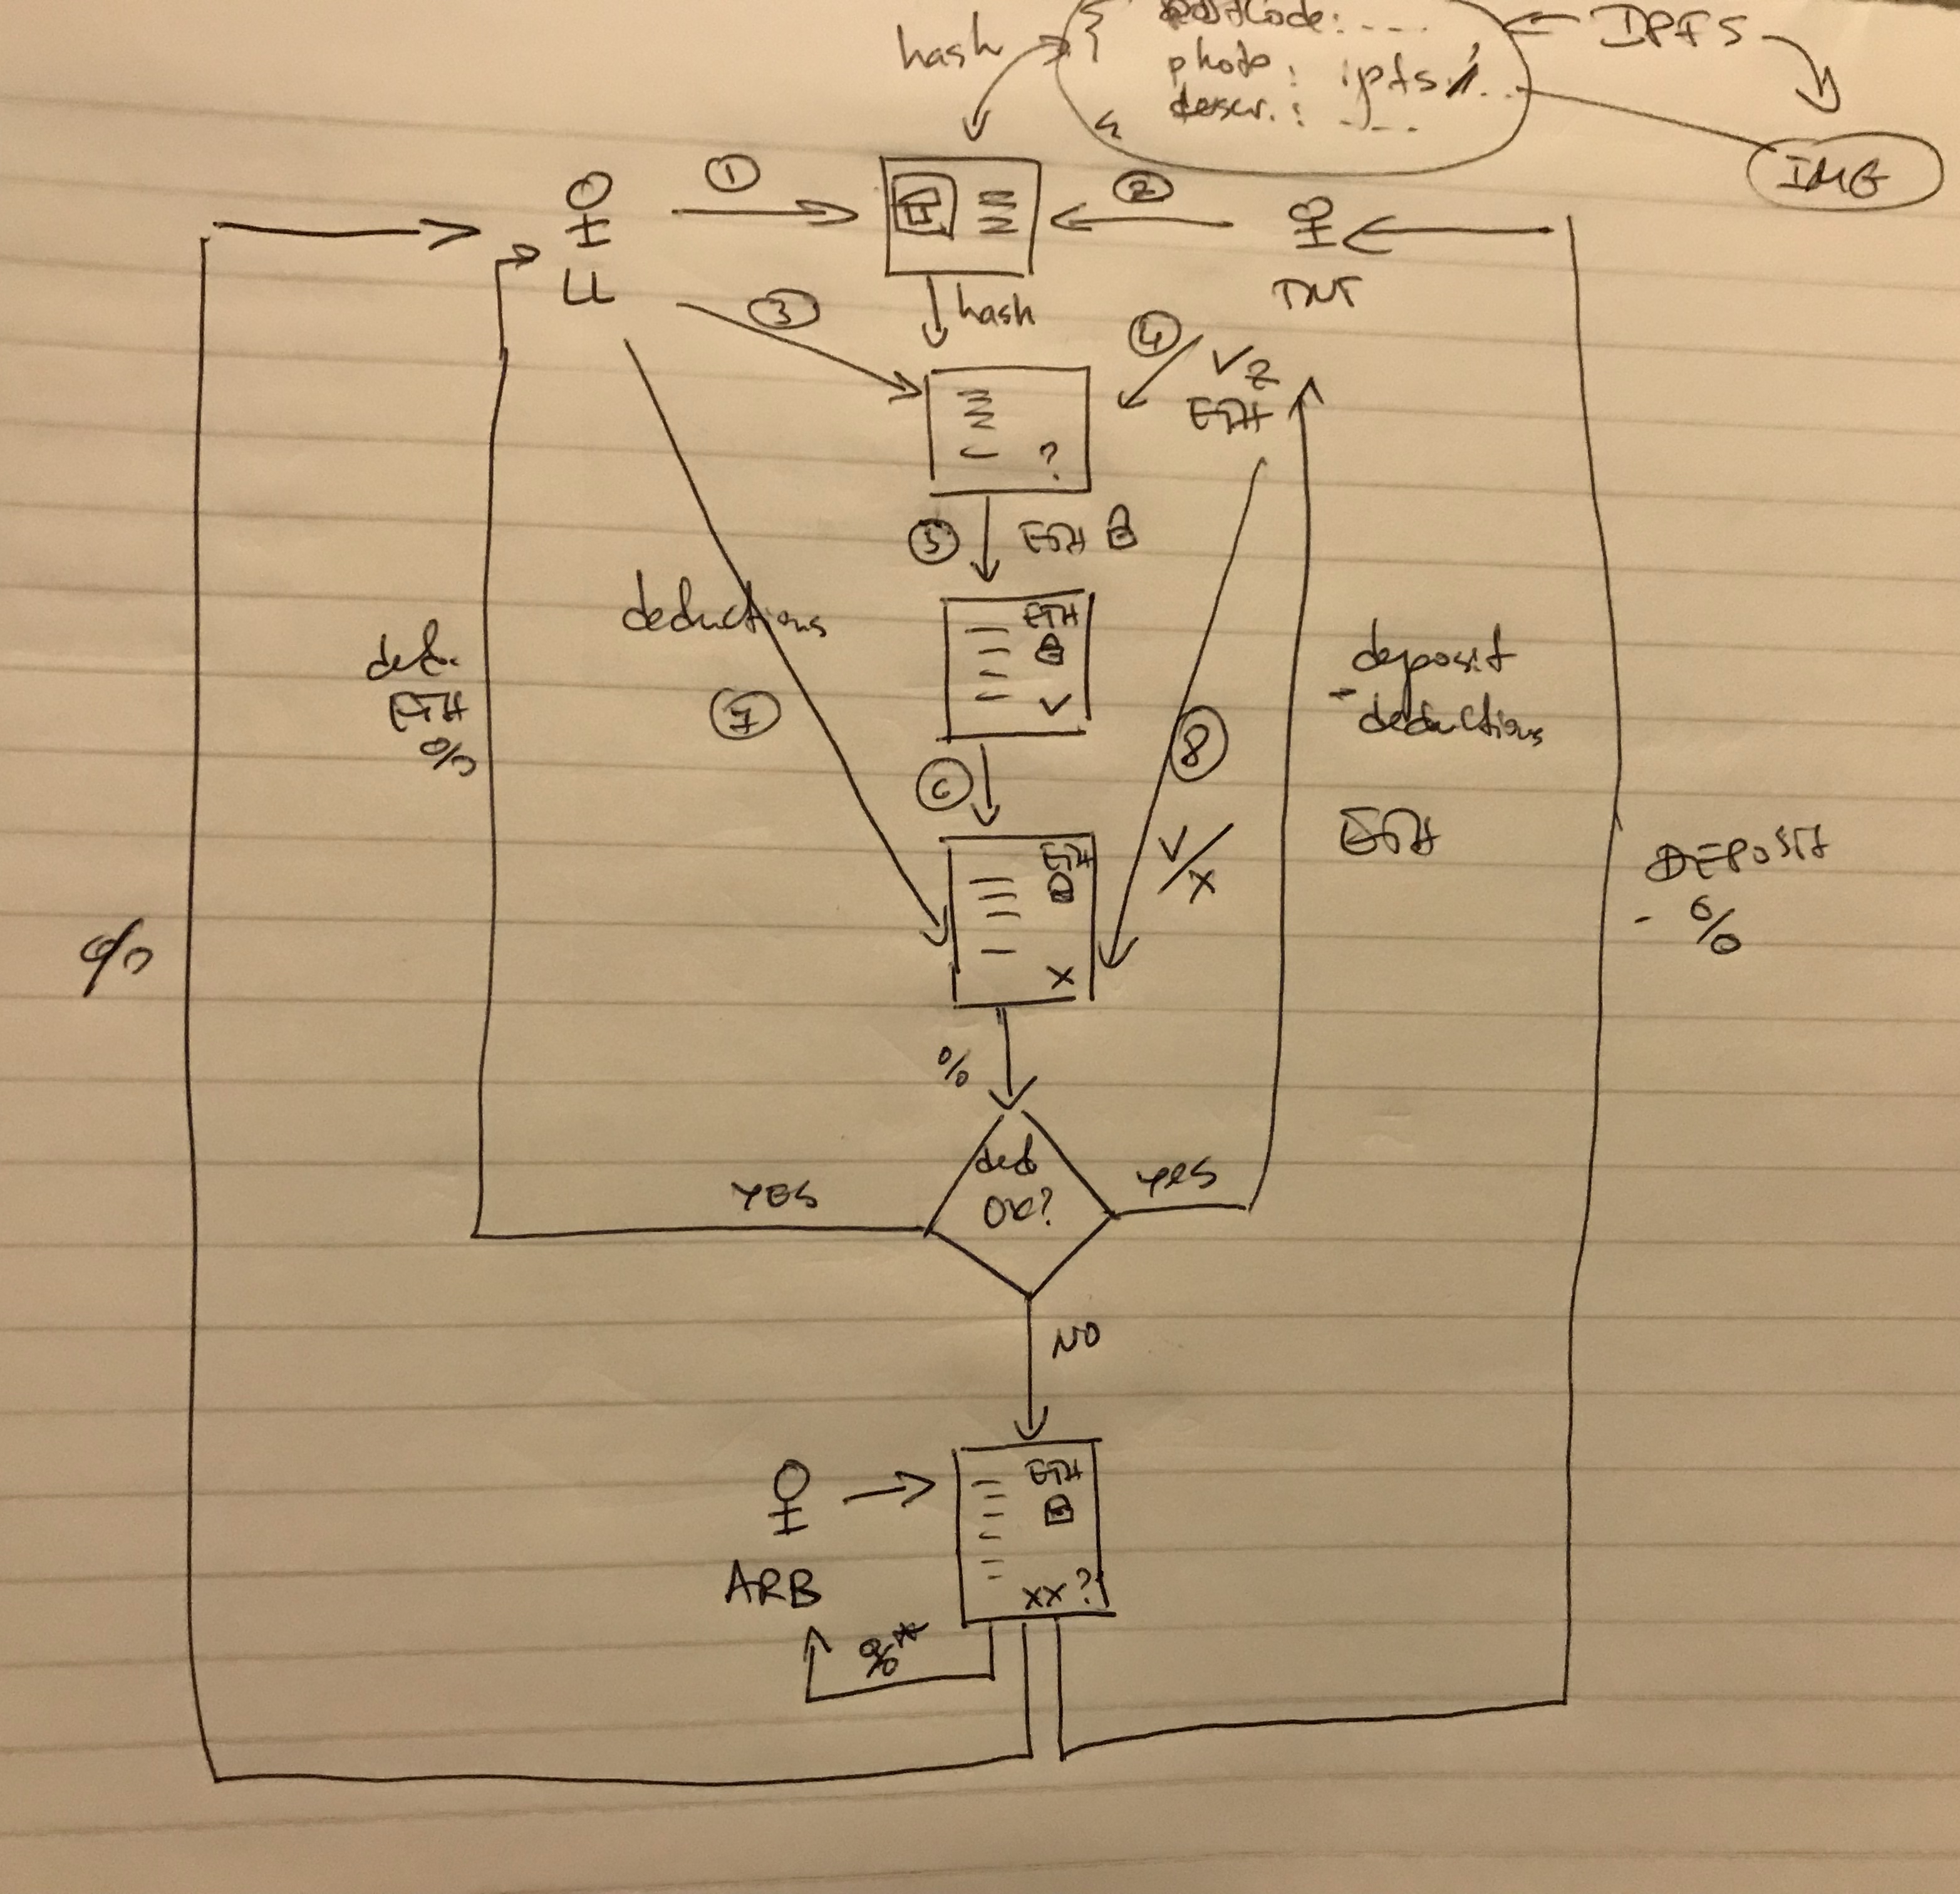 hash
{ postCode: ....
photo: ipfs://...
descr.: ....
IPFS
IMG
1
2
LL
TNT
3
hash
4
✓ 2
ETH
?
5
ETH
deductions
ETH
✓
ded.
ETH
%
7
6
8
deposit
- deductions
ETH
✓/x
ETH
x
%
DEPOSIT
- %
%
ded
OK?
YES
YES
NO
ETH
ARB
xx?
%*